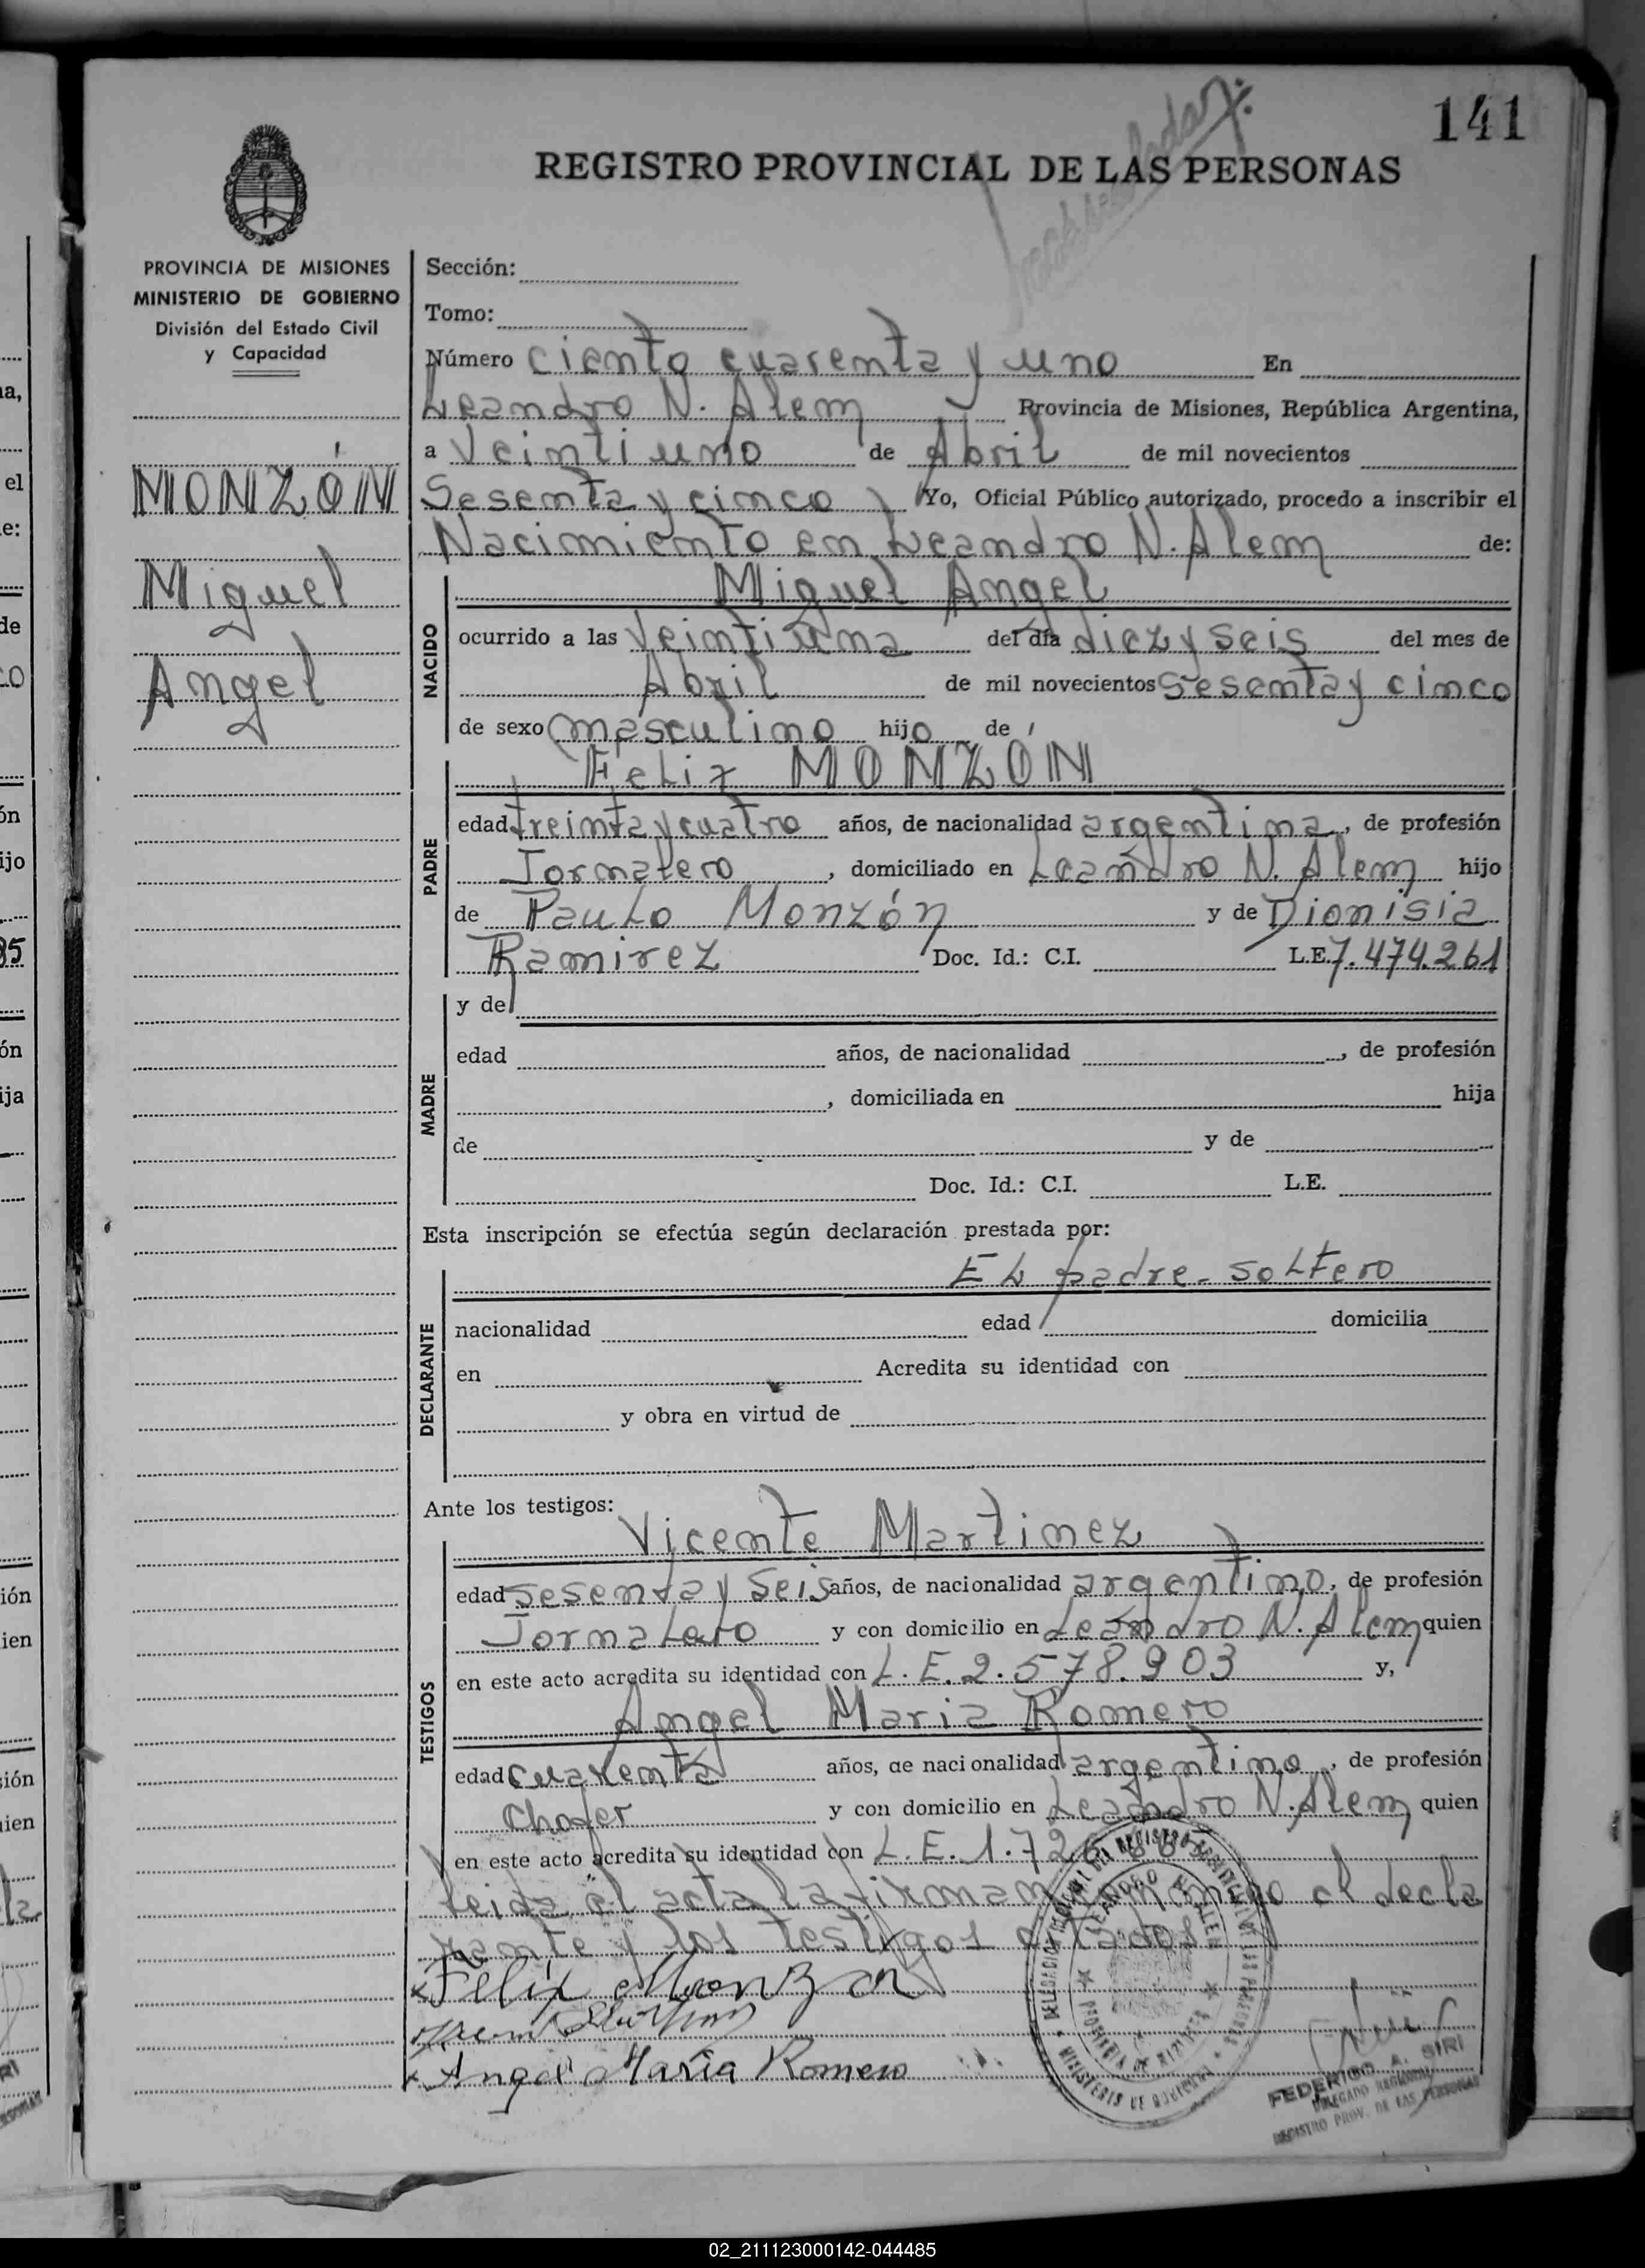 141
REGISTRO PROVINCIAL DE LAS PERSONAS
PROVINCIA DE MISIONES
MINISTERIO DE GOBIERNO
División del Estado Civil
y Capacidad
MONZÓN
Miguel
Angel
Sección:
Tomo:
Número ciento cuarenta y uno En
Leandro N. Alem Provincia de Misiones, República Argentina,
a Veintiuno de Abril de mil novecientos
Sesenta y cinco Yo, Oficial Público autorizado, procedo a inscribir el
Nacimiento en Leandro N. Alem de:
NACIDO
Miguel Angel
ocurrido a las Veintiuna del día diez y seis del mes de
Abril de mil novecientos Sesenta y cinco
de sexo masculino hijo de
PADRE
Felix MONZÓN
edad treinta y cuatro años, de nacionalidad argentina, de profesión
Jornalero, domiciliado en Leandro N. Alem hijo
de Paulo Monzón y de Dionisia
Ramirez Doc. Id.: C.I. L.E. 7.474.261
MADRE
y de
edad años, de nacionalidad , de profesión
, domiciliada en hija
de y de
Doc. Id.: C.I. L.E.
Esta inscripción se efectúa según declaración prestada por:
DECLARANTE
El padre - soltero
nacionalidad edad domicilia
en Acredita su identidad con
y obra en virtud de
Ante los testigos:
TESTIGOS
Vicente Martinez
edad Sesenta y Seis años, de nacionalidad argentino, de profesión
Jornalero y con domicilio en Leandro N. Alem quien
en este acto acredita su identidad con L.E. 2.578.903 y,
Angel Maria Romero
edad Cuarenta años, de nacionalidad argentino, de profesión
Chofer y con domicilio en Leandro N. Alem quien
en este acto acredita su identidad con L.E. 1.726
leida el acta la firman conmigo el decla
rante y los testigos citados
Felix Monzon
Angel Maria Romero
FEDERICO A. SIRI
DELEGADO REGIONAL
REGISTRO PROV. DE LAS PERSONAS
02_211123000142-044485